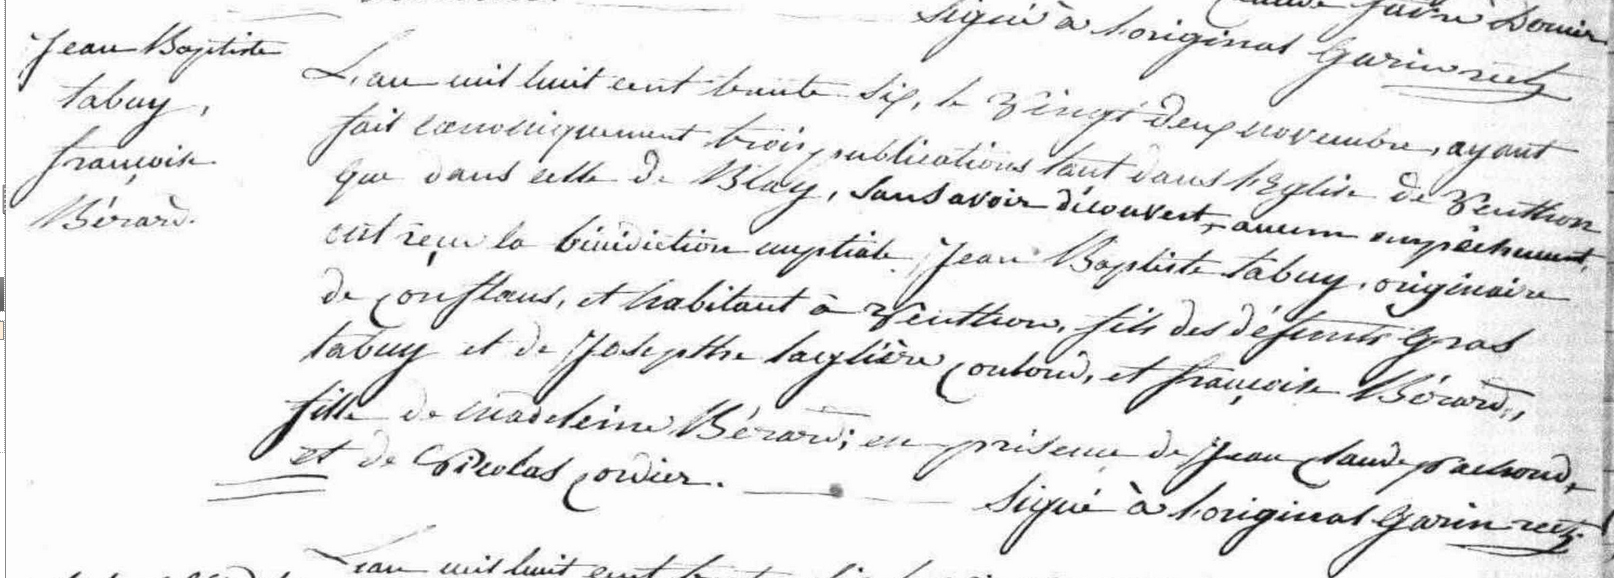 Claude favre Domier
Signé à l'original Garin rect
Jean Baptiste
tabuy,
françoise
Bérard.
L'an mil huit cent trente six, le vingt deux novembre, ayant
fait canoniquement trois publications tant dans l'Eglise de Venthon
que dans celle de Blay, sans avoir découvert aucun empêchement,
ont reçu la bénédiction nuptiale Jean Baptiste tabuy, originaire
de Conflans, et habitant à Venthon, fils des défunts Gras
tabuy et de Josephte Couloud, et françoise Bérard,
fille de Madeleine Bérard; en présence de Jean Claude
et de Nicolas Cordier.
Signé à l'original Garin rect.
L'an mil huit cent trente